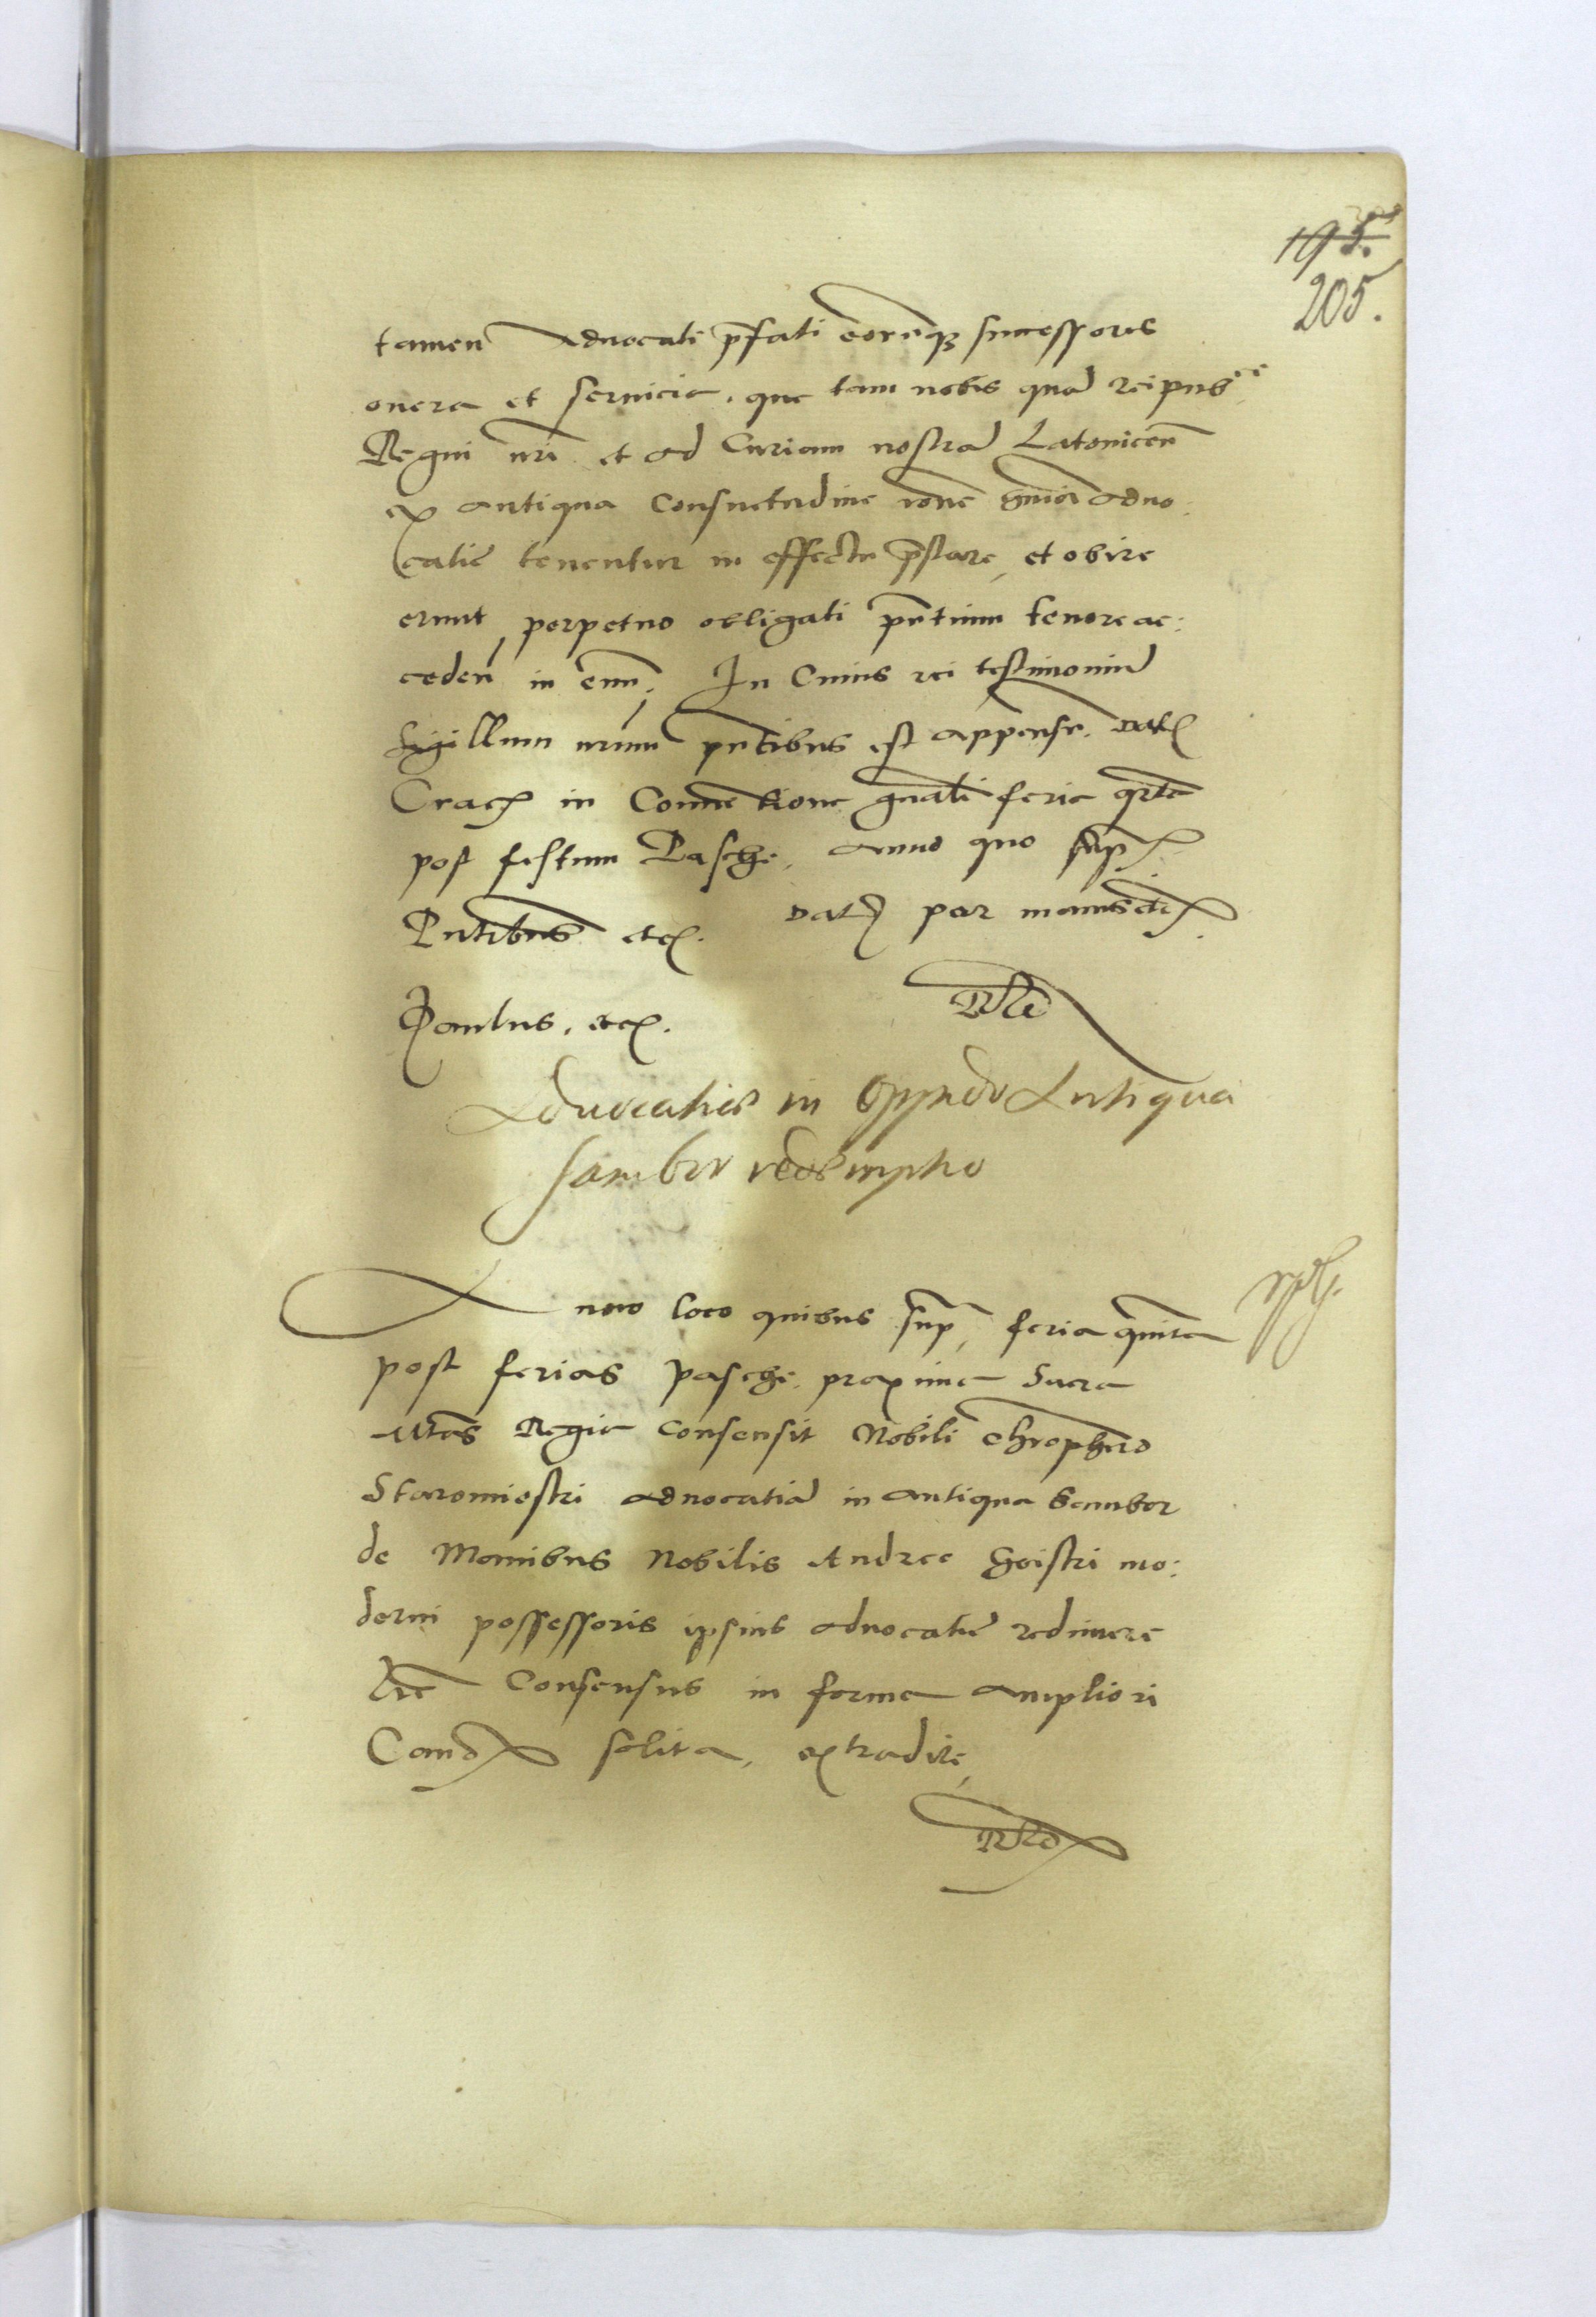 195.
205.
tamen Advocati p̄fati eor̄q₃ successores
onera et servicia, que tam nobis quā reipub^ce
Regni n̄ri et ad Curiam nostrā Latovicen̄
ex antiqua consuetudine rōne advo:
catie tenentur in effectu p̄stare, et obire
erunt perpetuo obligati pn̄tium tenore ac:
ceden̄ in eūm. In Cuius rei testimoniū
Sigillum nr̄um pn̄tibus est appensū. Datꝭ
Cracꝭ in Conventione gn̄ali feria qr̄ta
post festum Pasche, Anno quo supꝭ
Pn̄tibus etcꝭ. Datꝭ per manus etcꝭ
Paulus, etcꝭ. Rl̄e
Advocatie in Oppido Antiqua
Sambor redemptio
Anno loco quibus sup̄, feria quīta
post ferias pasche, proxima Sacra
Mtas Regia consensit Nobili Chrophero
Staromieski advocatiā in antiqua Sambor
de Manibus Nobilis Andree mo:
derni possessoris ipsius advocatie redimere
Consensus in forma ampliori
Cancꝭ solita, extradite,
Rl̄e